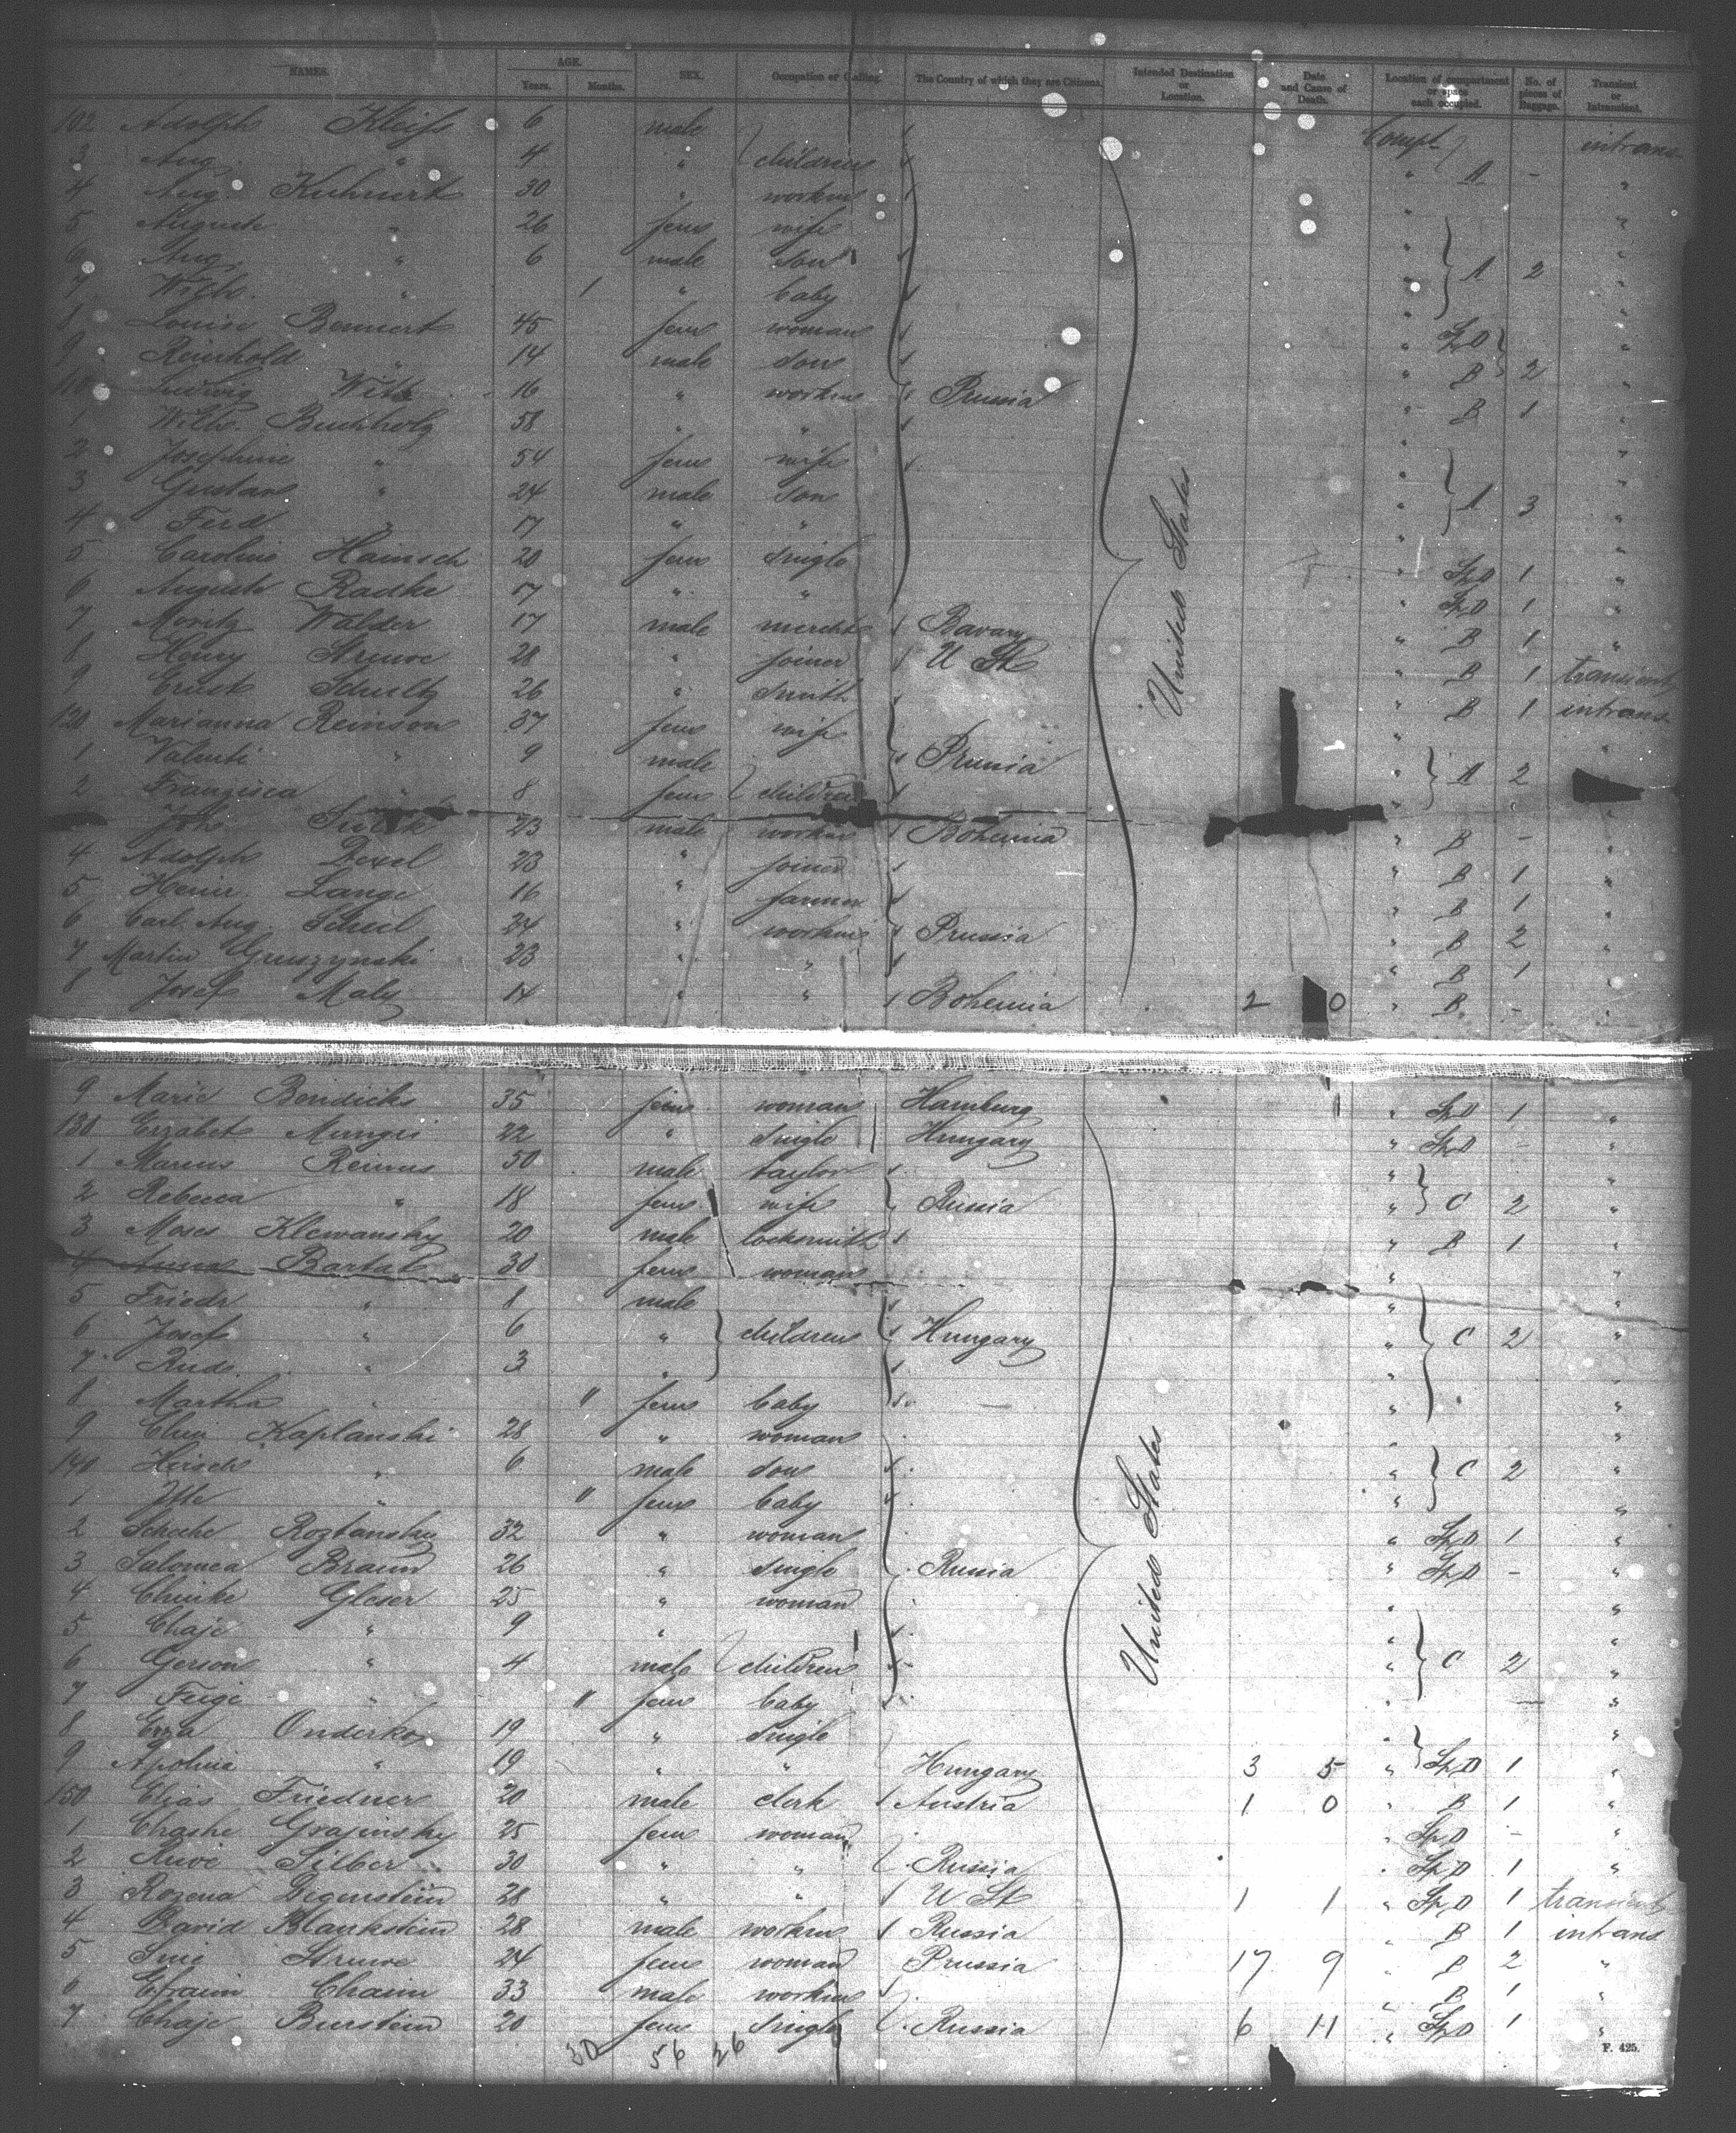 NAMES. AGE. Years. Months. SEX. Occupation or Calling. The Country of which they are Citizens. Intended Destination or Location. Date and Cause of Death. Location of compartment or space each occupied. No. of pieces of Baggage. Transient or Intransient.
102 Adolph 6 male Compt intrans
3 Aug. " 4 " children " A - "
4 Aug. Kuhnert 30 " workm " "
5 Auguste " 26 fem wife " "
6 Aug. " 6 male son " A 2 "
7 Wilh. " 1 " baby " "
8 Louise Bennert 45 fem woman " Sp D "
9 Reinhold " 14 male son " B 2 "
110 Ludwig 16 " workm Prussia " B 1 "
1 Wilh. Buchholz 58 " " "
2 Josephine " 54 fem wife " "
3 Gustav " 24 male son " A 3 "
4 Ferd. " 17 " " " "
5 Caroline Hainsch 20 fem single United States " Sp D 1 "
6 Auguste Radke 17 " " " Sp D 1 "
7 Moritz Walder 17 male mercht Bavary " B 1 "
8 Henry Struve 28 " joiner U St " B 1 transient
9 Ernst Schultz 26 " smith " B 1 intrans
120 Marianna Reinson 37 fem wife " "
1 Valenti " 9 male Prussia " A 2
2 Francisca " 8 fem children "
Joh. 23 male workm Bohemia " B - "
4 Adolph Dexel 23 " joiner " B 1 "
5 Heinr. Lange 16 " farmer " B 1 "
6 Carl Aug. Scheel 24 " workm Prussia " B 2 "
7 Martin Gruszynski 23 " " " B 1
8 Josef Maly 14 " " Bohemia 2 0 " B -
9 Marie Bendicks 35 fem woman Hamburg " Sp D 1 "
130 Erzabet 22 " single Hungary " Sp D - "
1 Marcus Reinus 50 male taylor " "
2 Rebecca " 18 fem wife Russia " C 2 "
3 Moses Klewansky 20 male locksmith " B 1 "
4 Anna Bartal 30 fem woman " "
5 Friedr " 8 male "
6 Josef " 6 " children Hungary " C 2 "
7 Rud. " 3 " " "
8 Martha " " fem baby " "
9 Kaplanski 28 " woman " "
140 Hirsch " 6 male son " C 2 "
1 Itte " " fem baby " "
2 Scheche 32 " woman " Sp D 1 "
3 Salomea Braun 26 " single Russia " Sp D - "
4 Chinke Gleser 25 " woman United States " "
5 Chaje " 9 " " "
6 Gerson " 4 male children " C 2 "
7 Feige " " fem baby " "
8 Erza Onderko 19 " single " "
9 Apolina " 19 " " Hungary 3 5 " Sp D 1 "
150 Elias Friedner 20 male clerk Austria 1 0 " B 1 "
1 Chashe Grajinsky 25 fem woman " Sp D - "
2 Silber 30 " " Russia " Sp D 1 "
3 Rozena Degenstein 28 " " U St 1 1 " Sp D 1 transient
4 David Blankstein 28 male workm Russia " B 1 intrans
5 Struve 24 fem woman Prussia 17 9 " B 2 "
6 Efraim Chaim 33 male workm " B 1 "
7 Chaje Burstein 20 fem single Russia 6 11 " Sp D 1 "
30 56 26
F. 425.